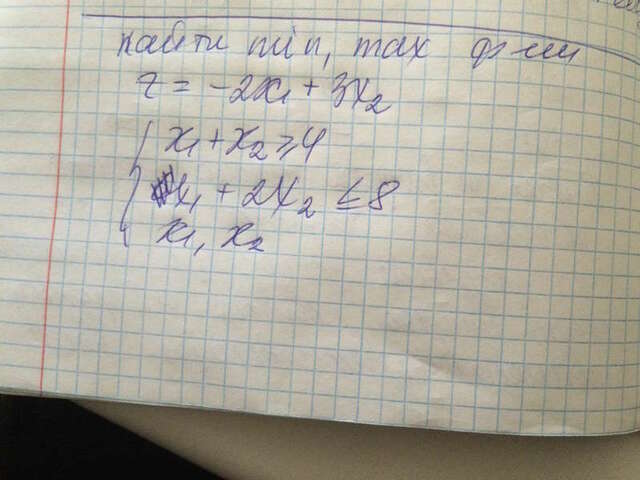 найти min, max ф-ции
z = -2x₁ + 3x₂
x₁ + x₂ ≥ 4
x₁ + 2x₂ ≤ 8
x₁, x₂